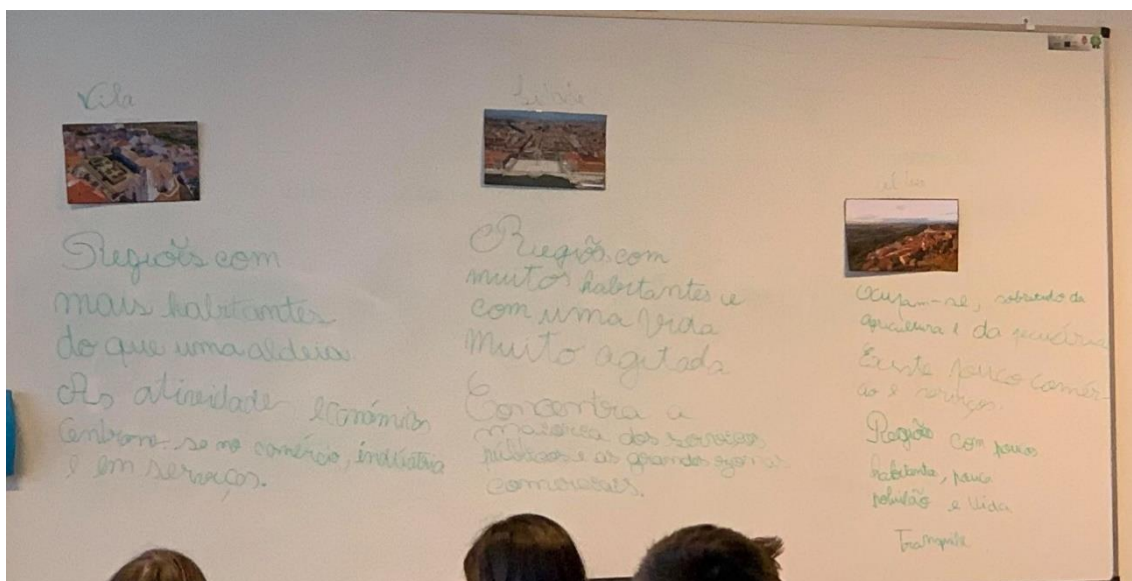 Vila
Regiões com
mais habitantes
do que uma aldeia
As atividade económicas
Centram-se no comércio, indústria
e em serviços.
Cidade
Regiõs com
muitos habitantes e
com uma vida
Muito agitada
Concentra a
maiorea dos serviços
públicos e as grandes
comerciais.
Ocupam-se, sobretudo da
agricultura e da pecuária
Existe pouco comér-
cio e serviços.
Região com poucos
habitante, pouca
poluição e Vida
Tranquila